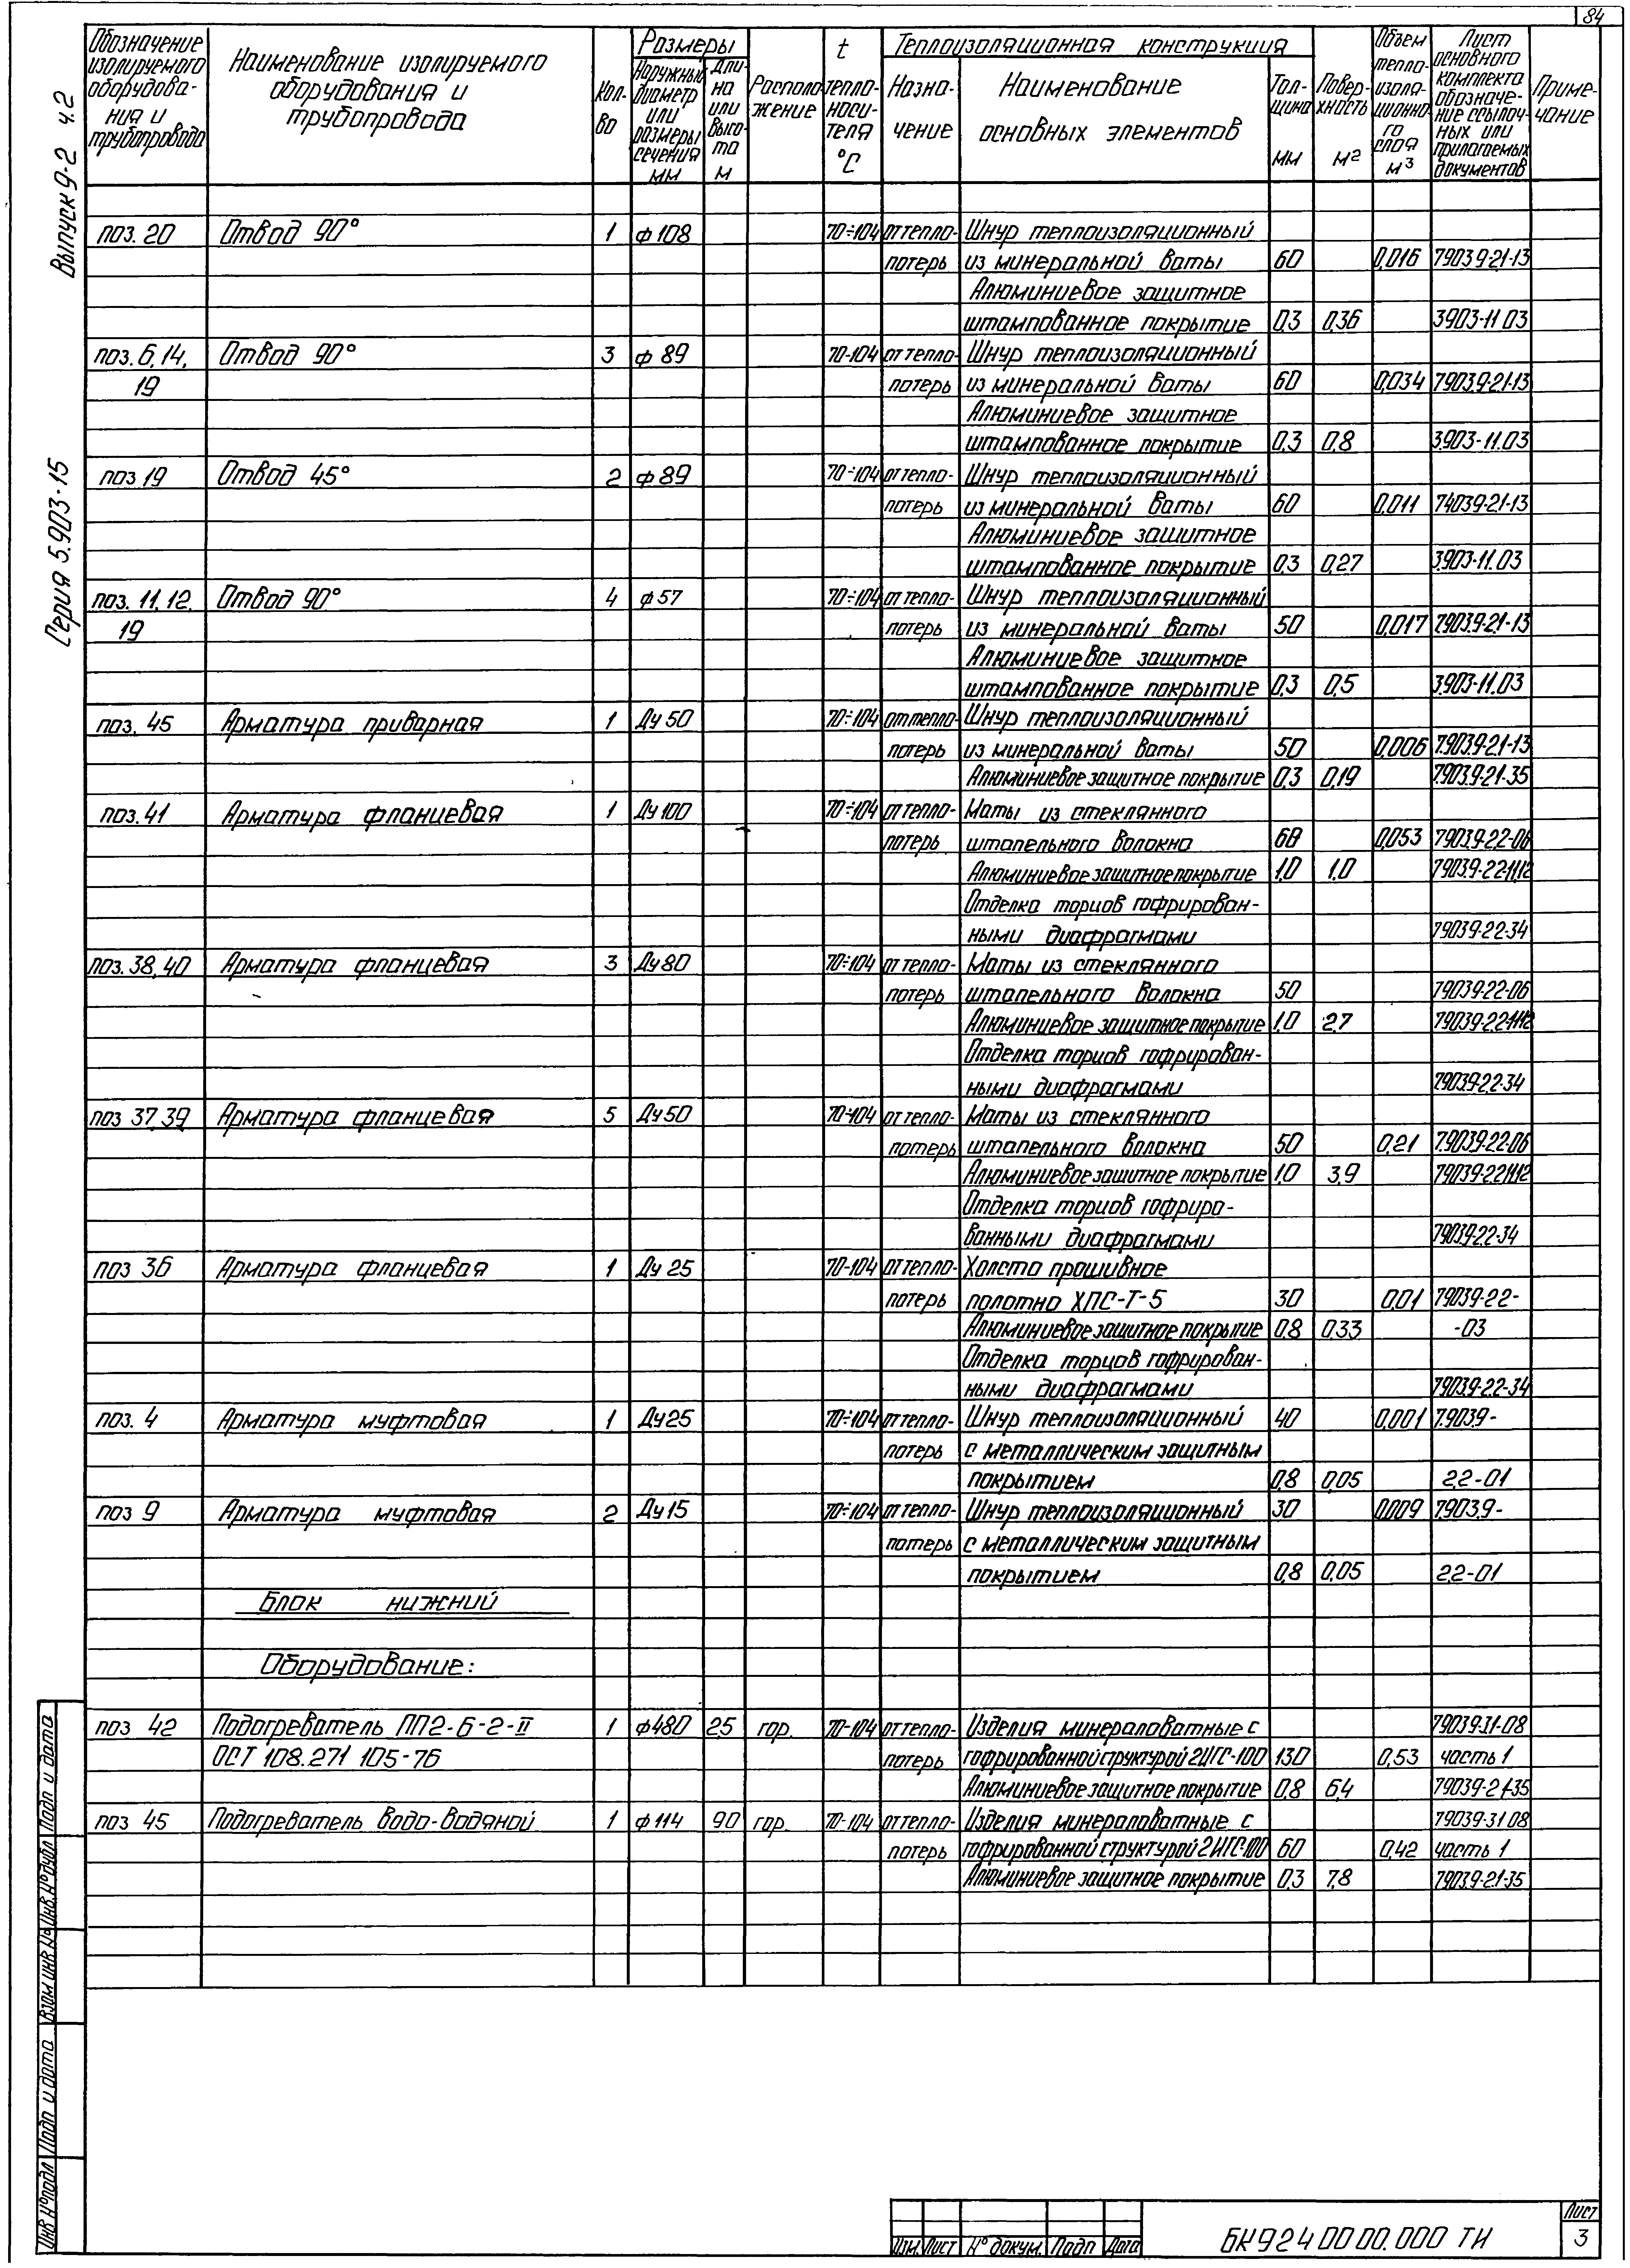 84
Выпуск 9-2 ч.2
Серия 5.903-15
Обозначение изолируемого оборудова- ния и трубопровода | Наименование изолируемого оборудования и трубопровода | Кол- во | Размеры | Наружный диаметр или размеры сечения мм | Дли- на или высо- та м | Располо- жение | t тепло- носи- теля °С | Теплоизоляционная конструкция | Назна- чение | Наименование основных элементов | Тол- щина мм | Повер- хность м2 | Объем тепло- изоля- ционно- го слоя м3 | Лист основного комплекта обозначе- ние ссылоч- ных или прилагаемых документов | Приме- чание
поз. 20 Отвод 90° 1 ф108 70÷104 от тепло- Шнур теплоизоляционный
потерь из минеральной ваты 60 0,016 7.903.9-2.1-13
Алюминиевое защитное
штампованное покрытие 0,3 0,36 3.903-11.03
поз. 6, 14, Отвод 90° 3 ф 89 70-104 от тепло- Шнур теплоизоляционный
19 потерь из минеральной ваты 60 0,034 7.903.9-2.1-13
Алюминиевое защитное
штампованное покрытие 0,3 0,8 3.903-11.03
поз 19 Отвод 45° 2 ф89 70÷104 от тепло- Шнур теплоизоляционный
потерь из минеральной ваты 60 0,011 74039-21-13
Алюминиевое защитное
штампованное покрытие 0,3 0,27 3.903-11.03
поз. 11, 12, Отвод 90° 4 ф57 70÷104 от тепло- Шнур теплоизоляционный
19 потерь из минеральной ваты 50 0,017 7.903.9-2.1-13
Алюминиевое защитное
штампованное покрытие 0,3 0,5 3.903-11.03
поз. 45 Арматура приварная 1 Ду 50 70÷104 от тепло- Шнур теплоизоляционный
потерь из минеральной ваты 50 0,006 7.903.9-2.1-13
Алюминиевое защитное покрытие 0,3 0,19 7.903.9-2.1-35
поз. 41 Арматура фланцевая 1 Ду 100 70÷104 от тепло- Маты из стеклянного
потерь штапельного волокна 60 0,053 7.903.9-2.2-06
Алюминиевое защитное покрытие 1,0 1,0 7.903.9-2.2-11,12
Отделка торцов гофрирован-
ными диафрагмами 7.903.9-2.2-34
поз. 38, 40 Арматура фланцевая 3 Ду 80 70÷104 от тепло- Маты из стеклянного
потерь штапельного волокна 50 7.903.9-2.2-06
Алюминиевое защитное покрытие 1,0 2,7 7.903.9-2.2-11,12
Отделка торцов гофрирован-
ными диафрагмами 7.903.9-2.2-34
поз 37, 39 Арматура фланцевая 5 Ду 50 70÷104 от тепло- Маты из стеклянного
потерь штапельного волокна 50 0,21 7.903.9-2.2-06
Алюминиевое защитное покрытие 1,0 3,9 7.903.9-2.2-11,12
Отделка торцов гофриро-
ванными диафрагмами 7.903.9-2.2-34
поз 36 Арматура фланцевая 1 Ду 25 70-104 от тепло- Холсто прошивное
потерь полотно ХПС-Т-5 30 0,01 7.903.9-2.2-
Алюминиевое защитное покрытие 0,8 0,33 -03
Отделка торцов гофрирован-
ными диафрагмами 7.903.9-2.2-34
поз. 4 Арматура муфтовая 1 Ду 25 70÷104 от тепло- Шнур теплоизоляционный 40 0,001 7.903.9-
потерь с металлическим защитным
покрытием 0,8 0,05 2.2-01
поз 9 Арматура муфтовая 2 Ду 15 70÷104 от тепло- Шнур теплоизоляционный 30 0,009 7.903.9-
потерь с металлическим защитным
покрытием 0,8 0,05 2.2-01
Блок нижний
Оборудование:
поз 42 Подогреватель ПП2-6-2-II 1 ф480 2,5 гор. 70-104 от тепло- Изделия минераловатные с 7.903.9-3.1-08
ОСТ 108.271 105-76 потерь гофрированной структурой 2ИГС-100 130 0,53 часть 1
Алюминиевое защитное покрытие 0,8 6,4 7.903.9-2.1-35
поз 45 Подогреватель водо-водяной 1 ф 114 9,0 гор. 70-104 от тепло- Изделия минераловатные с 7.903.9-3.1 08
потерь гофрированной структурой 2ИГС-100 60 0,42 часть 1
Алюминиевое защитное покрытие 0,3 7,8 7.903.9-2.1-35
Инв № подл Подп и дата Взам инв № Инв. № дубл Подп и дата
Изм. Лист № докум. Подп Дата
БК924 00 00.000 ТИ
Лист
3